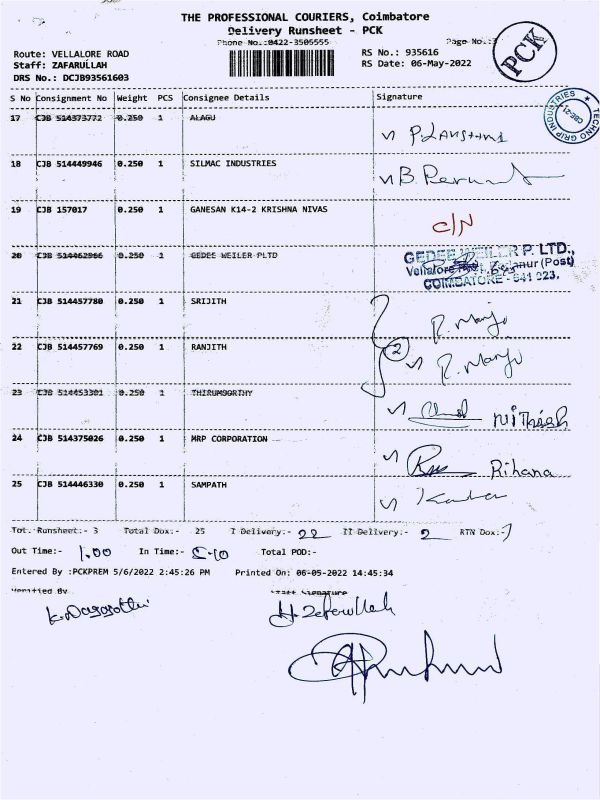 THE PROFESSIONAL COURIERS, Coimbatore
Delivery Runsheet - PCK
Phone No.:0422-3505555
Page No.:3
Route: VELLALORE ROAD
RS No.: 935616
Staff: ZAFARULLAH
RS Date: 06-May-2022
DRS No.: DCJB93561603
PCK
TECHNO GRIP INDUSTRIES
CBE-21
S No Consignment No Weight PCS Consignee Details Signature
17 CJB 514373772 0.250 1 ALAGU
18 CJB 514449946 0.250 1 SILMAC INDUSTRIES
19 CJB 157017 0.250 1 GANESAN K14-2 KRISHNA NIVAS C/N
20 CJB 514462966 0.250 1 GEDEE WEILER PLTD
GEDEE WEILER P. LTD.,
Vellalore (Post)
COIMBATORE - 641 023.
21 CJB 514457780 0.250 1 SRIJITH R. Manju
22 CJB 514457769 0.250 1 RANJITH 2 R. Manju
23 CJB 514453301 0.250 1 THIRUMOORTHY Nithish
24 CJB 514375026 0.250 1 MRP CORPORATION Rihana
25 CJB 514446330 0.250 1 SAMPATH
Tot. Runsheet:- 3 Total Dox:- 25 I Delivery:- 22 II Delivery:- 2 RTN Dox:- 1
Out Time:- 1.00 In Time:- 5.10 Total POD:-
Entered By :PCKPREM 5/6/2022 2:45:26 PM Printed On: 06-05-2022 14:45:34
Verified By Staff Signature
H. Zafarullah